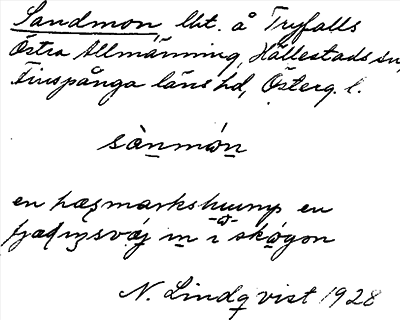 Sandmon, lht. å Tryfalls
Östra Allmänning, Hällestads sn,
Finspånga läns hd, Österg. l.
sànmón
en hæʂmarkshump en
i skógon
N. Lindqvist 1928